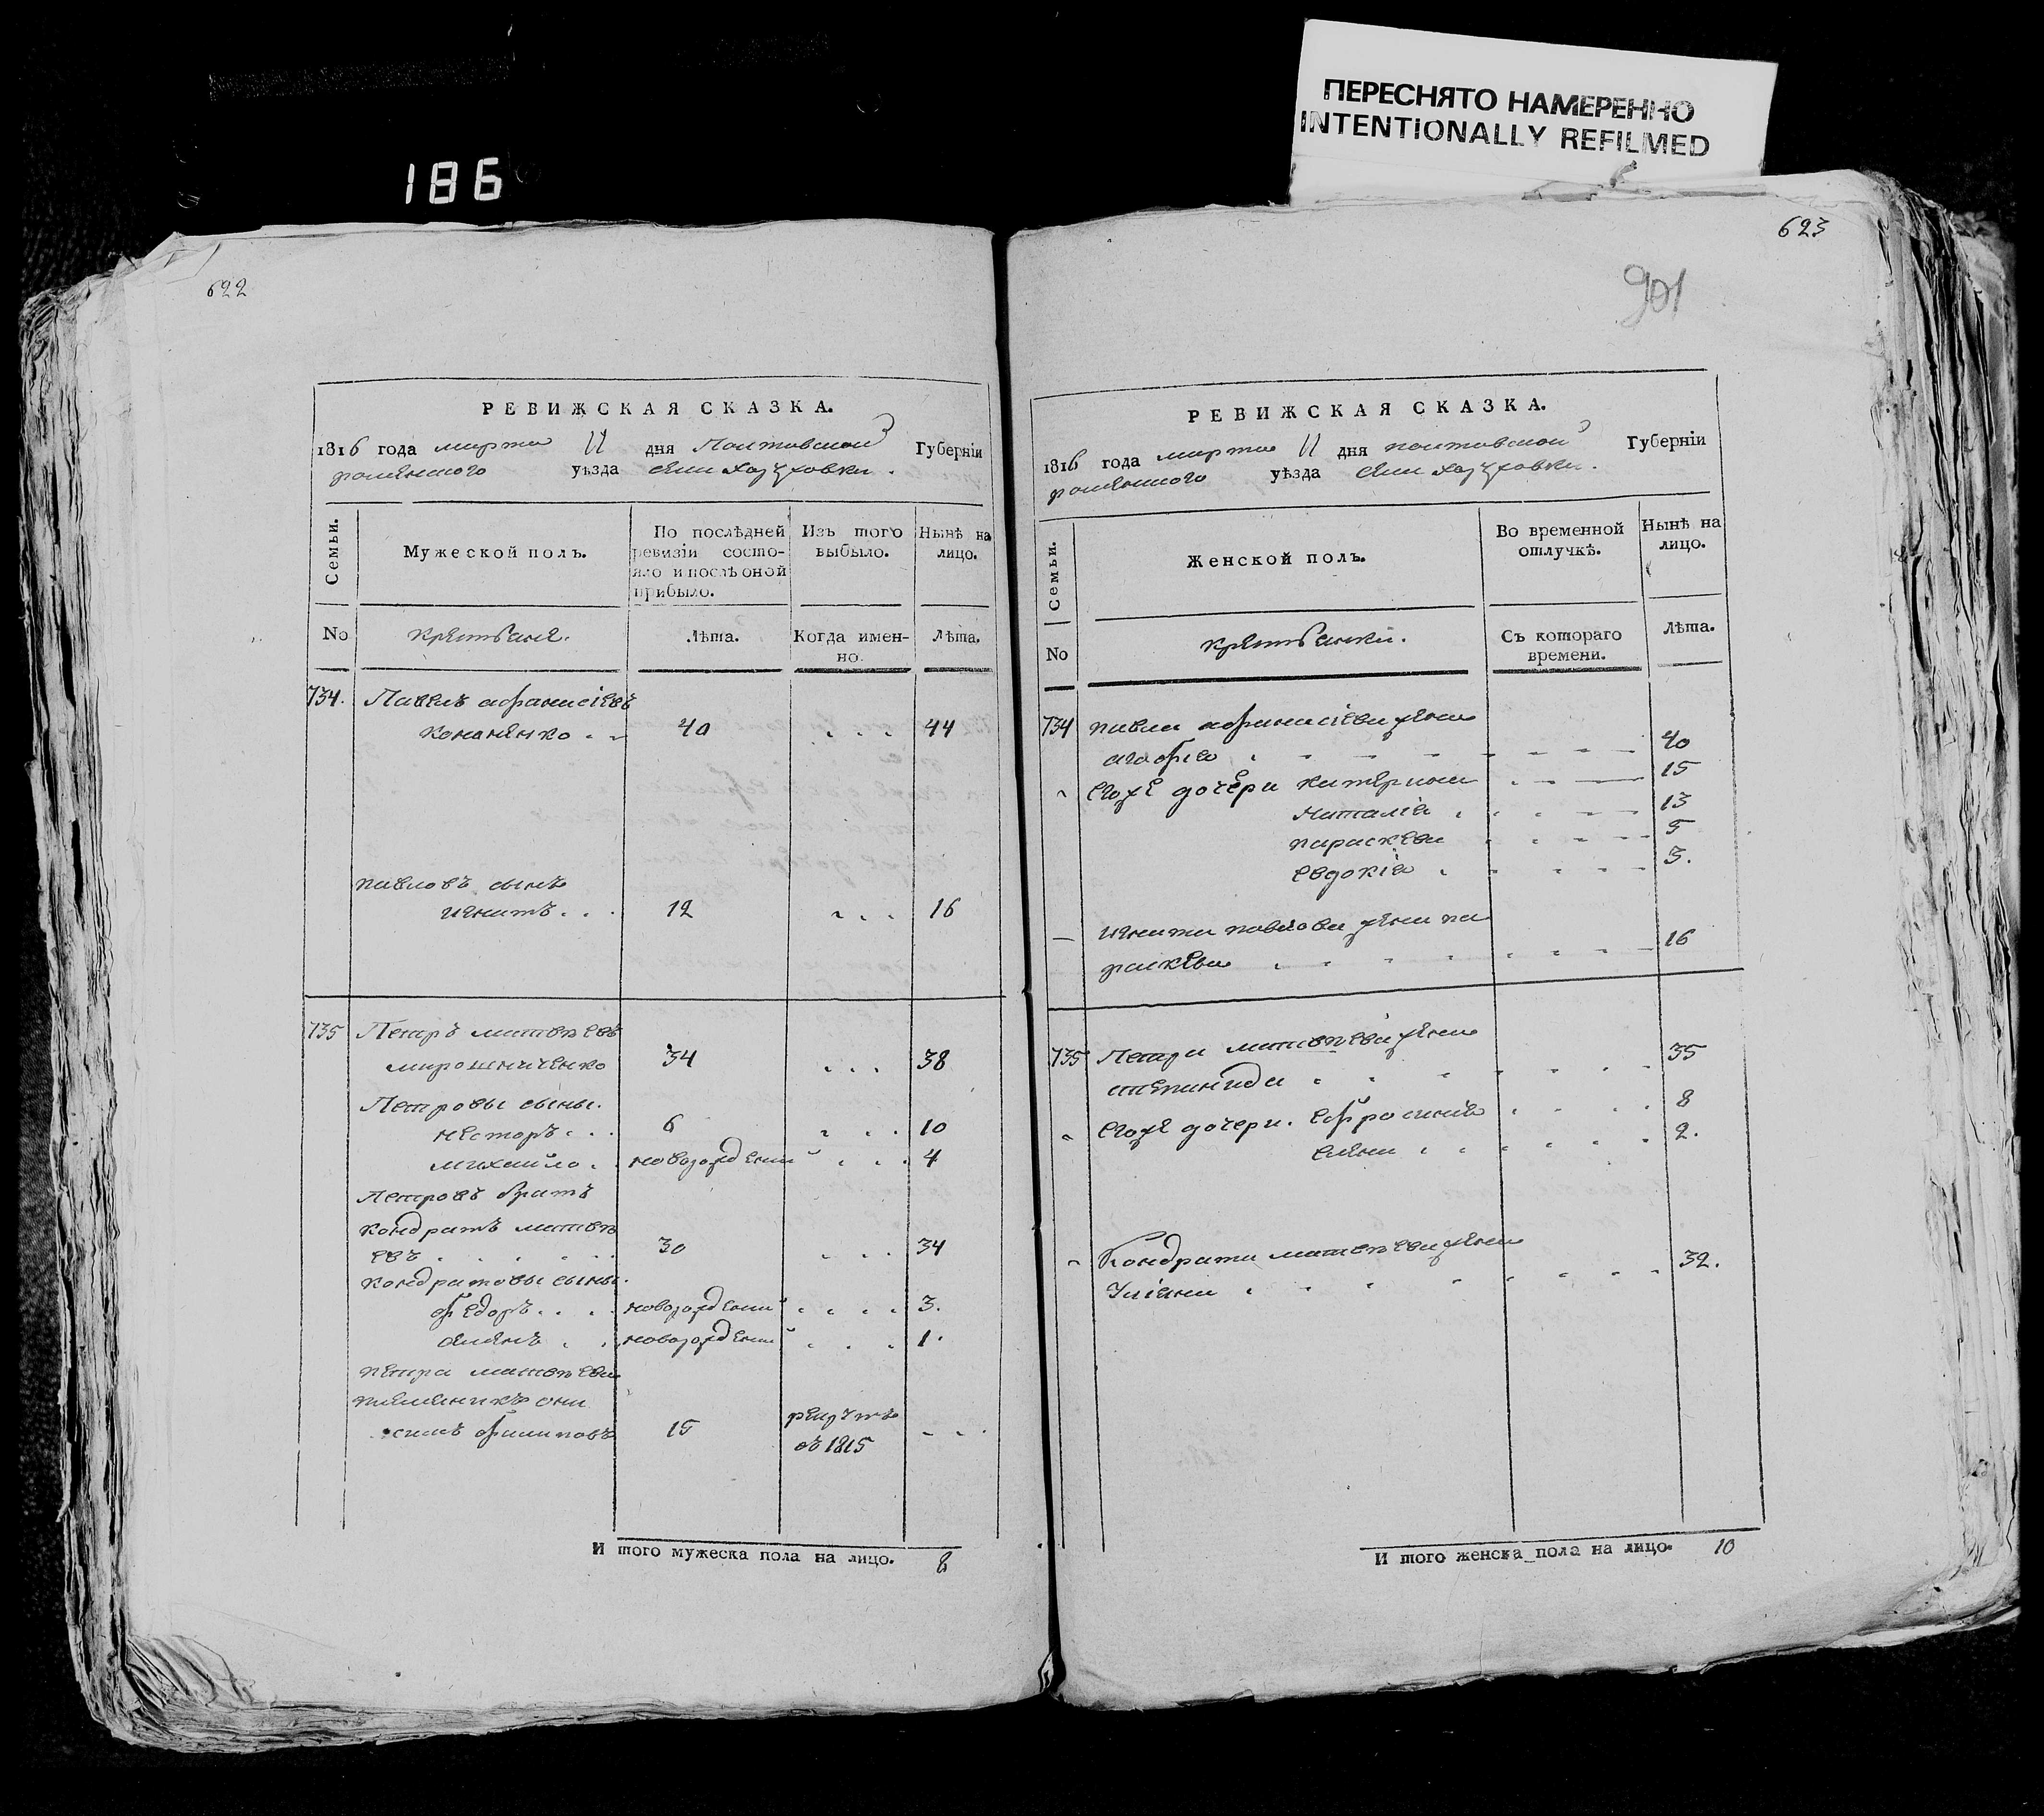 ПЕРЕСНЯТО НАМЕРЕННО
INTENTIONALLY REFILMED
186
622
РЕВИЖСКАЯ СКАЗКА.
1816 года марта 11 дня Полтавской Губернїи
роменского уѣзда села
Семьи.
Мужеской полъ.
По послѣдней ревизїи состо-
яло и послѣ оной
прибыло.
Изъ того
выбыло.
Нынѣ на
лицо.
No
крестьяне.
Лѣта.
Когда имен-
но.
Лѣта.
734. Павелъ афанасіевъ
кононенко 40 44
павловъ сынъ
игнатъ 12 16
735 Петръ матвѣевъ
мирошниченко 34 38
Петровы сыны.
несторъ 6 10
михайло новорожденый 4
Петровъ братъ
кондратъ матвѣ
евъ 30 34
кондратовы сыны.
федоръ новорожденый 3.
новорожденый 1.
петра матвѣева
племеникъ они
симъ филиповъ 15 рекрутъ
въ 1815
И того мужеска пола на лицо. 8
623
901
РЕВИЖСКАЯ СКАЗКА.
1816 года марта 11 дня полтавской Губернїи
роменского уѣзда села
Семьи.
Женской полъ.
Во временной
отлучкѣ.
Нынѣ на
лицо.
No
крестьянки.
Съ котораго
времени.
Лѣта.
734 павла афанасіева жена
агафія 40
егоже дочери катерина 15
наталія 13
параскева 5
евдокія 3.
игната павлова жена па
раскева 16
735 Петра матвѣева жена
степанида 35
егоже дочери. ефросинія 8
елена 2.
Кондрата матвѣева жена
Уліяна 32.
И того женска пола на лицо. 10